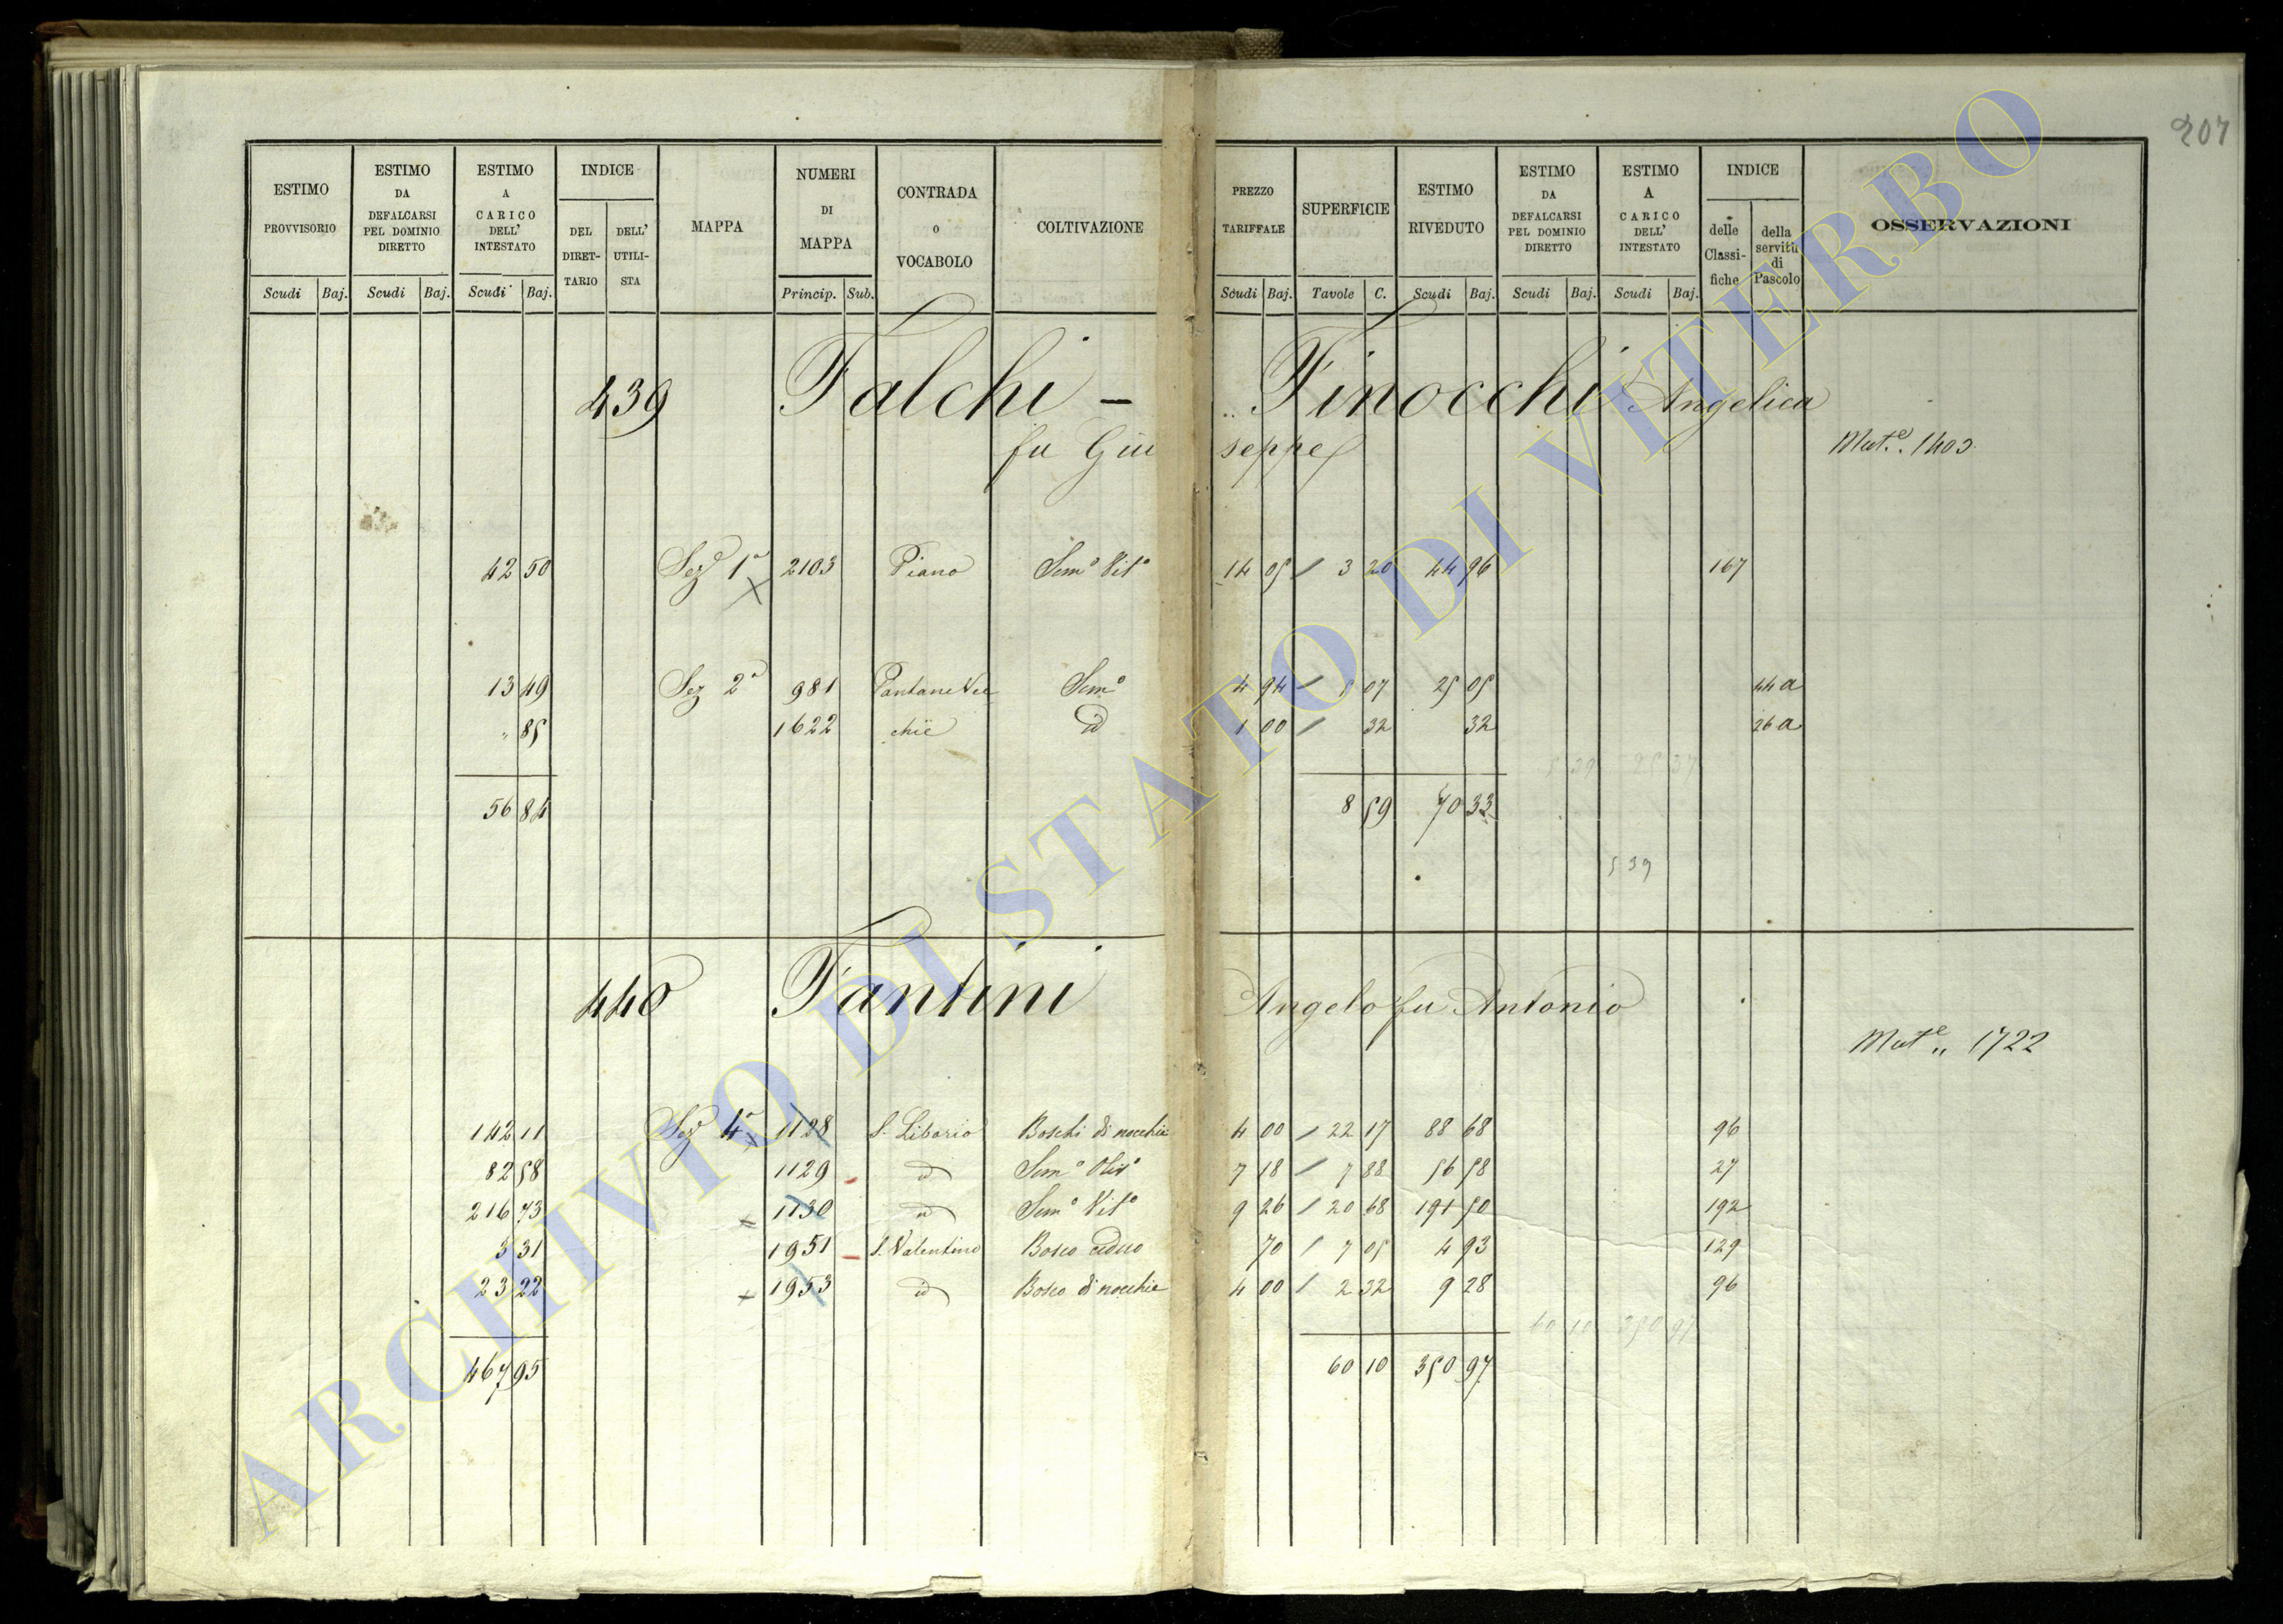 207
ESTIMO PROVVISORIO
ESTIMO DA DEFALCARSI PEL DOMINIO DIRETTO
ESTIMO A CARICO DELL' INTESTATO
INDICE
DEL DIRET-TARIO
DELL' UTILI-STA
MAPPA
NUMERI DI MAPPA
CONTRADA o VOCABOLO
COLTIVAZIONE
PREZZO TARIFFALE
SUPERFICIE
ESTIMO RIVEDUTO
ESTIMO DA DEFALCARSI PEL DOMINIO DIRETTO
ESTIMO A CARICO DELL' INTESTATO
INDICE
delle Classi-fiche
della servitù di Pascolo
OSSERVAZIONI
Scudi Baj. Scudi Baj. Scudi Baj. Princip. Sub. Scudi Baj. Tavole C. Scudi Baj. Scudi Baj. Scudi Baj.
439 Falchi - Finocchi Angelica
fu Giuseppe Mut.e 1403
42 50 Sez 1a 2103 Piano Semo Vito 14 05 / 3 20 44 96 167
13 49 Sez 2a 981 Semo 4 94 / 5 07 25 05 44 a
" 85 1622 chie id 1 00 / 32 32 26 a
5 39 25 37
56 84 8 59 70 33
5 39
440 Fantini Angelo fu Antonio
Mute „ 1722
142 11 Sez 4a 1128 S. Liborio Boschi di nocchie 4 00 / 22 17 88 68 96
82 58 1129 id Semo Olivo 7 18 / 7 88 56 58 27
216 73 1130 id Semo Vito 9 26 / 20 68 191 50 192
3 31 1951 S. Valentino Bosco ceduo 70 / 7 05 4 93 129
23 22 1953 id Bosco di nocchie 4 00 / 2 32 9 28 96
60 10 350 97
467 95 60 10 350 97
ARCHIVIO DI STATO DI VITERBO